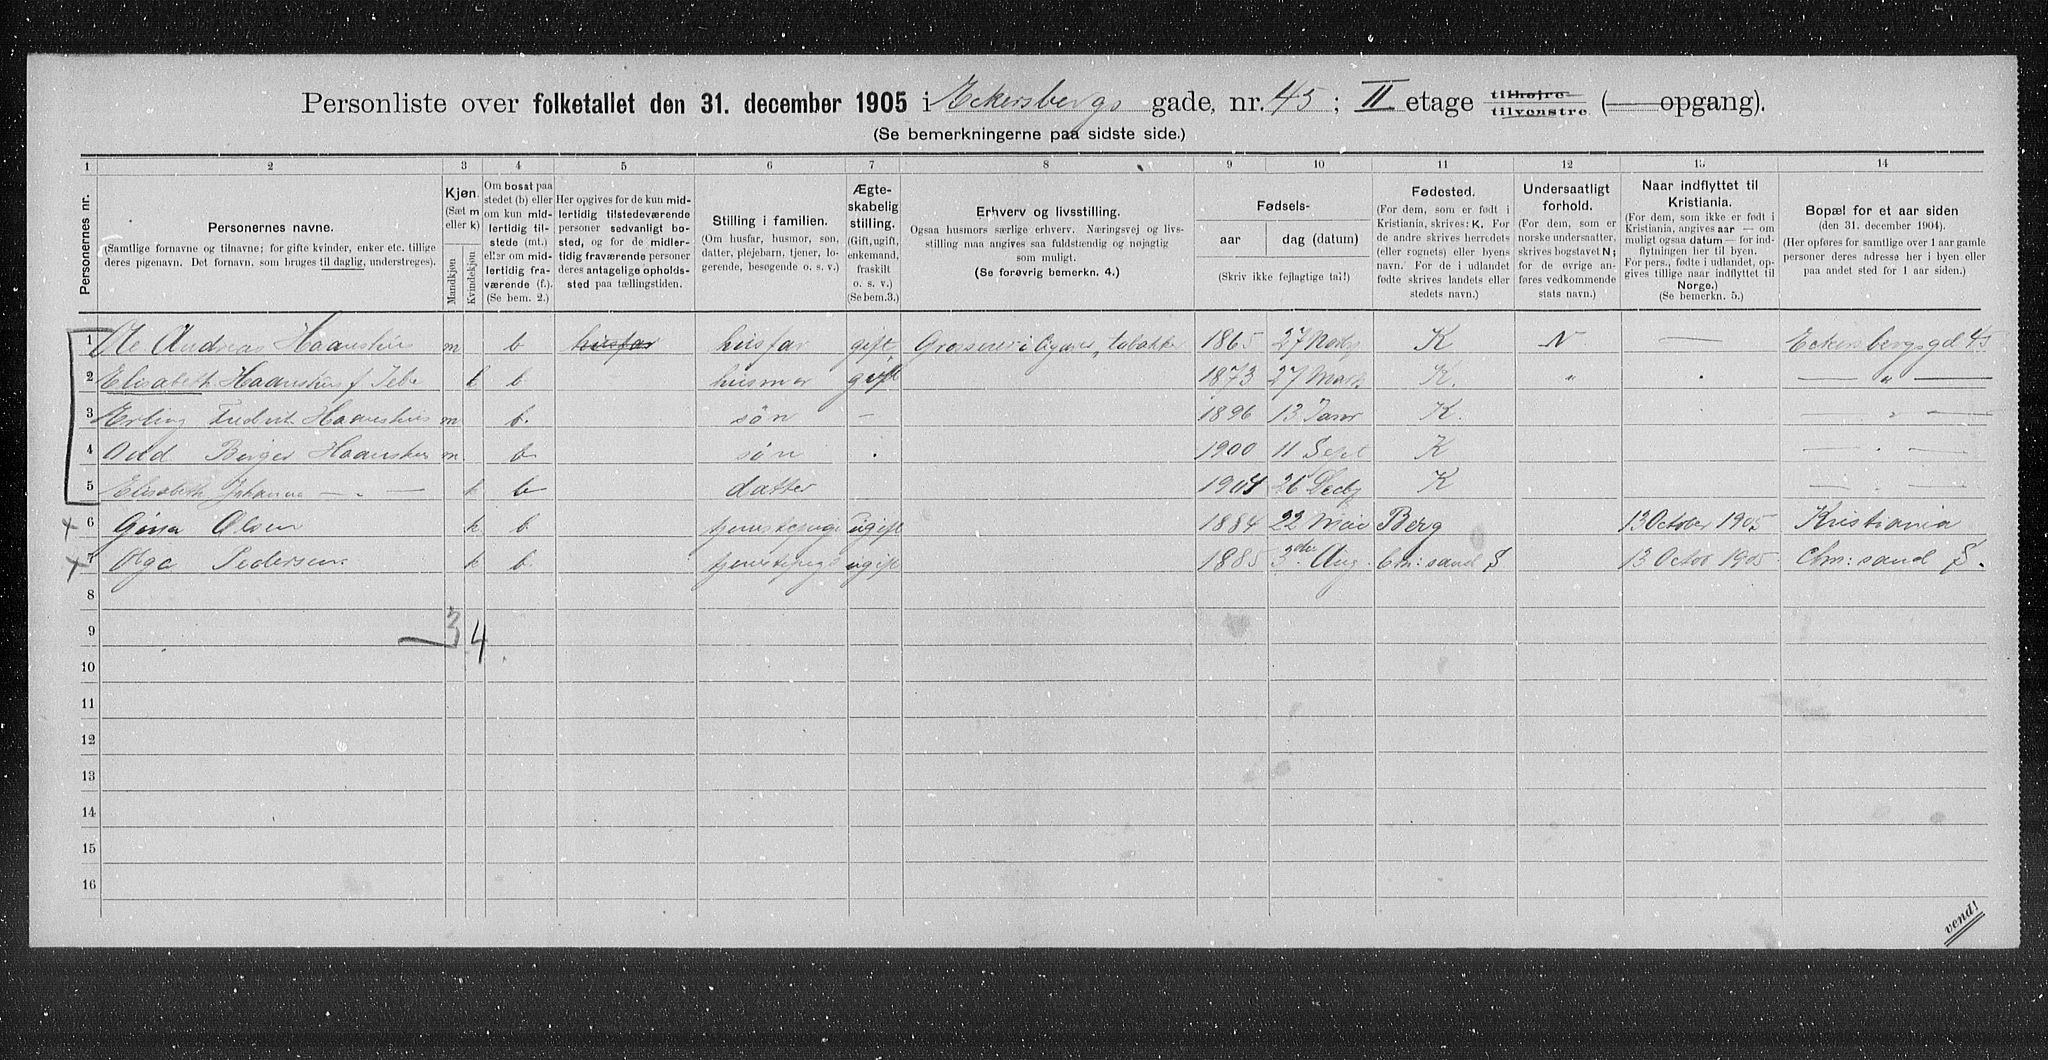 Personliste over folketallet den 31. december 1905 i Eckersbergs gade, nr. 45; II etage tilhøjre tilvenstre (— opgang).
(Se bemerkningerne paa sidste side.)
1 2 3 4 5 6 7 8 9 10 11 12 13 14
Personernes nr.
Personernes navne.
(Samtlige fornavne og tilnavne; for gifte kvinder, enker etc. tillige
deres pigenavn. Det fornavn, som bruges til daglig, understreges).
Kjøn.
(Sæt m
eller k)
Mandkjøn
Kvindekjøn
Om bosat paa
stedet (b) eller
om kun mid-
lertidig til-
stede (mt.)
eller om mid-
lertidig fra-
værende (f.).
(Se bem. 2.)
Her opgives for de kun mid-
lertidig tilstedeværende
personer sedvanligt bo-
sted, og for de midler-
tidig fraværende personer
deres antagelige opholds-
sted paa tællingstiden.
Stilling i familien.
(Om husfar, husmor, søn,
datter, plejebarn, tjener, lo-
gerende, besøgende o. s. v.)
Ægte-
skabelig
stilling.
(Gift, ugift,
enkemand,
fraskilt
o. s. v.)
(Se bem.3.)
Erhverv og livsstilling.
Ogsaa husmors særlige erhverv. Næringsvej og livs-
stilling maa angives saa fuldstændig og nøjagtig
som muligt.
(Se forøvrig bemerkn. 4.)
Fødsels-
aar
dag (datum)
(Skriv ikke fejlagtige tal!)
Fødested.
(For dem, som er født i
Kristiania, skrives: K. For
de andre skrives herredets
(eller sognets) eller byens
navn.) For de i udlandet
fødte skrives landets eller
stedets navn.)
Undersaatligt
forhold.
(For dem, som er
norske undersaatter,
skrives bogstavet N;
for de øvrige an-
føres vedkommende
stats navn.)
Naar indflyttet til
Kristiania.
(For dem, som ikke er født i
Kristiania, angives aar — om
muligt ogsaa datum — for ind-
flytningen her til byen.
For pers., fødte i udlandet, op-
gives tillige naar indflyttet til
Norge.)
(Se bemerkn. 5.)
Bopæl for et aar siden
(den 31. december 1904).
(Her opføres for samtlige over 1 aar gamle
personer deres adresse her i byen eller
paa andet sted for 1 aar siden.)
1 Ole Andreas Haanshus m b husfar husfar gift Grosserer i Cigarer, tobakke 1865 27 Novb. K N — Eckersbergsgd 45
2 Elisabeth Haanshus f Jebe k b husmor gift 1873 27 Mart. K. " . — " —
3 Erling Fredrik Haanshus m b. søn — 1896 13 Janr K. — " —
4 Odd Birger Haanshus m. b søn . 1900 11 Sept K — . —
5 Elisabeth Johanne — " — k b datter 1904 26 Decb. K — . —
x 6 Gina Olsen k b tjenestepige ugift 1884 22 Mai Berg 13 October 1905 Kristiania
x 7 Olga Pedersen k b. tjenestepige ugift 1885 3die Aug. Chr: sand S 13 Octob 1905 Chr: sand S.
8
9
3 4
10
11
12
13
14
15
16
vend!